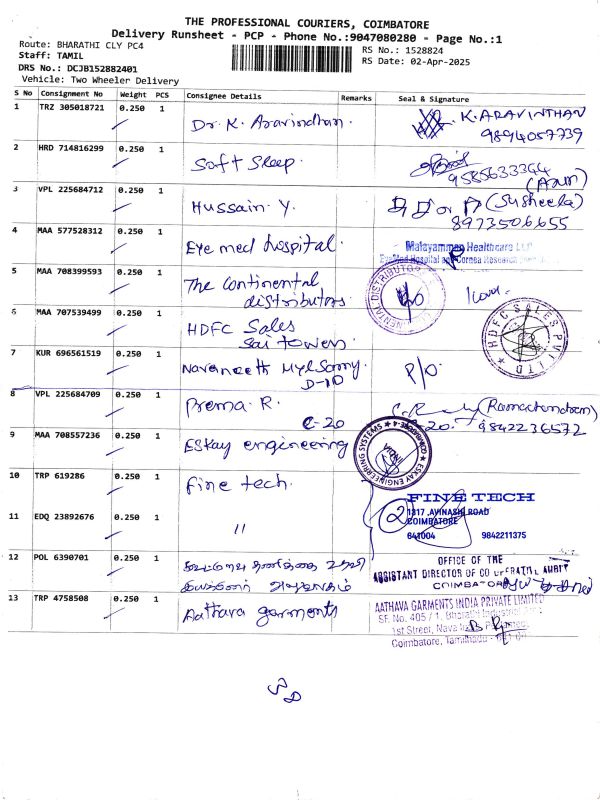 THE PROFESSIONAL COURIERS, COIMBATORE
Delivery Runsheet - PCP - Phone No.:9047080280 - Page No.:1
Route: BHARATHI CLY PC4
Staff: TAMIL
DRS No.: DCJB152882401
Vehicle: Two Wheeler Delivery
RS No.: 1528824
RS Date: 02-Apr-2025
S No Consignment No Weight PCS Consignee Details Remarks Seal & Signature
1 TRZ 305018721 0.250 1 Dr. K. Aravindhan. K. ARAVINTHAN
9894057739
2 HRD 714816299 0.250 1 Soft Sleep. 9585633344
(Arun)
3 VPL 225684712 0.250 1 Hussain. Y. (Susheela)
8973506655
4 MAA 577528312 0.250 1 Eye med hospital. Malayamman Healthcare LLP
EyeMed Hospital and Cornea Research
5 MAA 708399593 0.250 1 The Continental
distributors
6 MAA 707539499 0.250 1 HDFC Sales
Sai towers.
HDFC SALES PVT LTD
7 KUR 696561519 0.250 1 Navaneeth Mylsamy P/O
D-10
8 VPL 225684709 0.250 1 Prema. R. (Ramachandran)
C-20 9842236572
9 MAA 708557236 0.250 1 Eskay engineering
ESKAY ENGINEERING SYSTEMS
10 TRP 619286 0.250 1 Fine tech. FINE TECH
1317, AVINASHI ROAD
11 EDQ 23892676 0.250 1 " 2 COIMBATORE
641004 9842211375
12 POL 6390701 0.250 1 கூட்டுறவு தணிக்கை உதவி OFFICE OF THE
இயக்குனர் அலுவலகம் ASSISTANT DIRECTOR OF CO OPERATIVE AUDIT
COIMBATORE
13 TRP 4758508 0.250 1 Aathava garments AATHAVA GARMENTS INDIA PRIVATE LIMITED
SF. No. 405 / 1, Bharathi Industrial
1st Street, Nava
Coimbatore, Tamilnadu